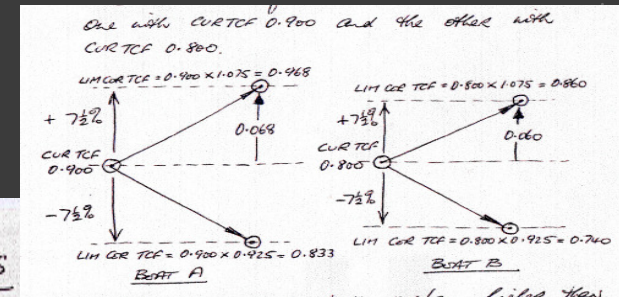 One with CUR TCF 0.900 and the other with
CUR TCF 0.800.
LIM COR TCF = 0.900 × 1.075 = 0.968
+ 7½%
0.068
CUR TCF
0.900
-7½%
LIM COR TCF = 0.900 × 0.925 = 0.833
BOAT A
LIM COR TCF = 0.800 × 1.075 = 0.860
+7½%
0.060
CUR TCF
0.800
-7½%
LIM COR TCF = 0.800 × 0.925 = 0.740
BOAT B